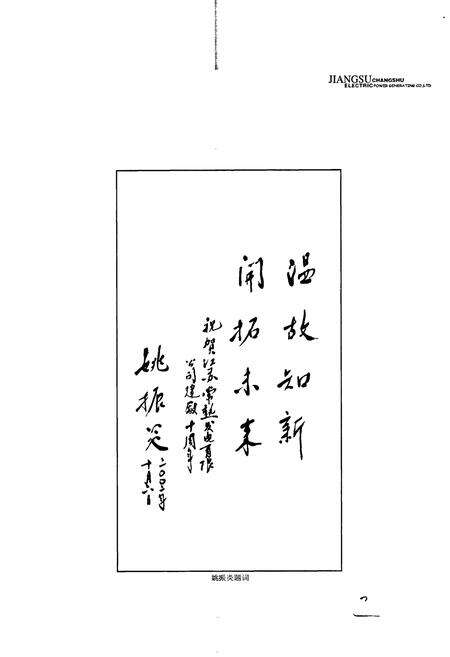 JIANGSU CHANGSHU
ELECTRIC POWER GENERATING CO.,LTD
温故知新
開拓未来
祝贺江苏常熟发电有限
公司建厰十周年
姚振炎
十月六日
姚振炎题词